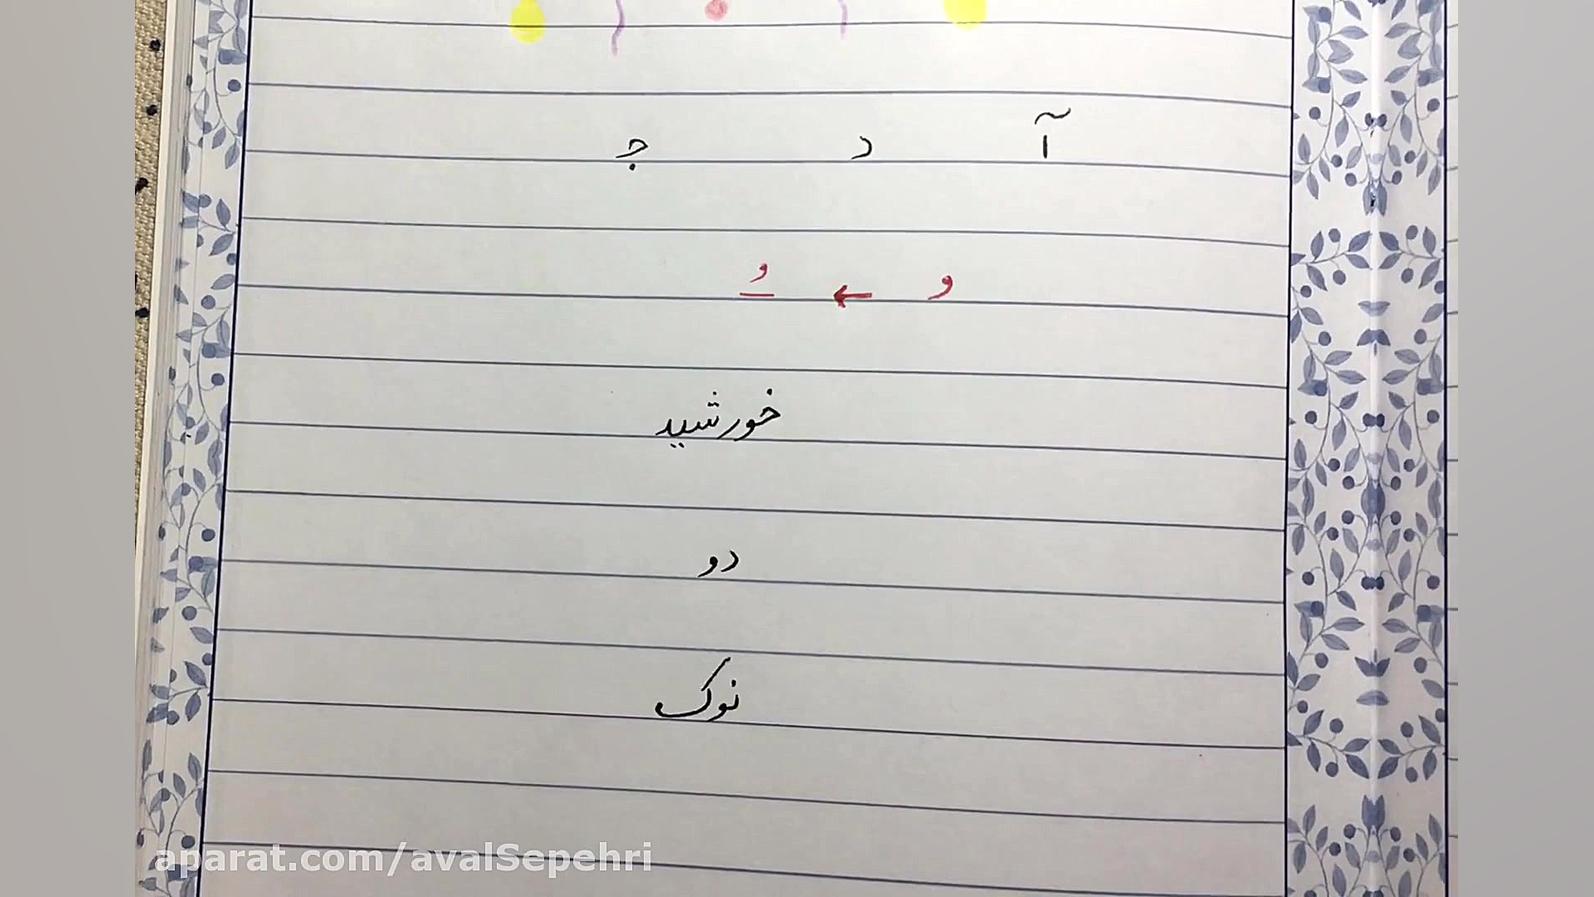 آ د جـ
و ← ـُ
خورشید
دو
نوک
aparat.com/avalSepehri